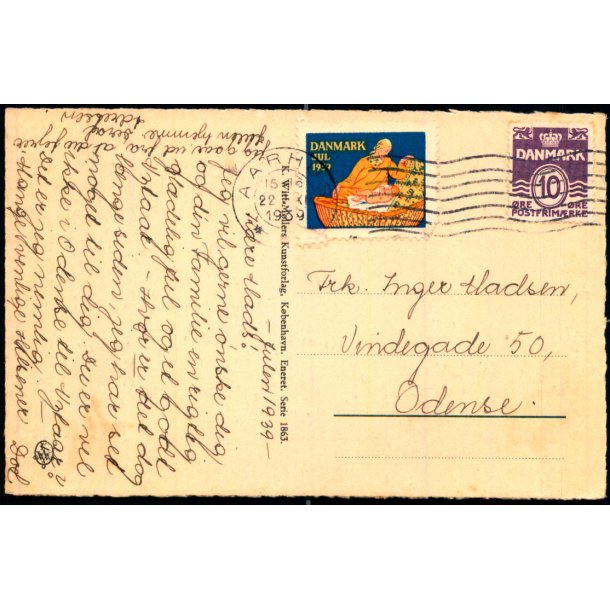 – Julen 1939 –
Kære Mads!
Jeg vil gerne ønske dig
og din Familie en rigtig
glædelig Jul og et godt
Nytaar – Hvor er det dog
længe siden jeg har set
noget til dig. Du er vel
ikke i Odense til Nytaar?
Det er jeg nemlig.
Mange venlige Hilsener
Jeg gaar ud fra, at du fejrer
Julen hjemme
K. Witt-Møllers Kunstforlag, København. Eneret. Serie 1863.
DANMARK
JUL
1939
AARHUS
15
22
1939
DANMARK
10
ØRE ØRE
POSTFRIMÆRKE
Frk. Inger Madsen,
Vindegade 50,
Odense.